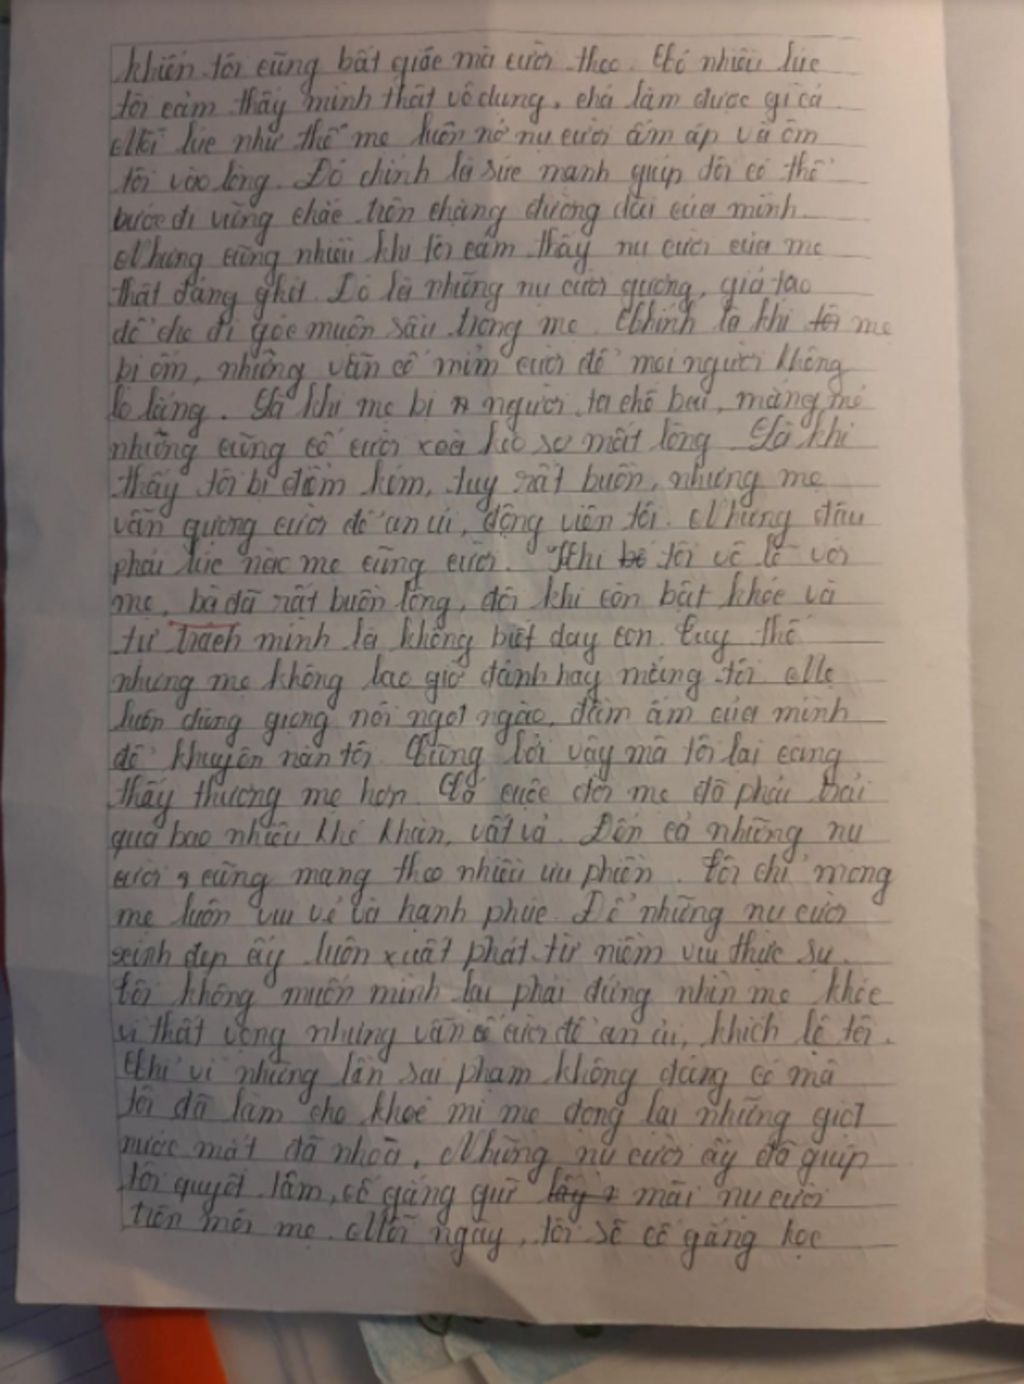 khiến tôi cũng bất giác mà cười theo. Có nhiều lúc
tôi cảm thấy mình thật vô dụng, chả làm được gì cả
Mỗi lúc như thế mẹ luôn nở nụ cười ấm áp và ôm
tôi vào lòng. Đó chính là sức mạnh giúp tôi có thể
bước đi vững chắc trên chặng đường dài của mình.
Nhưng cũng nhiều khi tôi cảm thấy nụ cười của mẹ
thật đáng ghét. Đó là những nụ cười gượng, giả tạo
để che đi góc muôn sầu trong mẹ. Chính là khi tôi mẹ
bị ốm, nhưng vẫn cố mỉm cười để mọi người không
lo lắng. Là khi mẹ bị người ta chê bai, mắng mỏ
nhưng cũng cố cười xoà kẻo sợ mất lòng. Là khi
thấy tôi bị điểm kém, tuy rất buồn, nhưng mẹ
vẫn gượng cười để an ủi, động viên tôi. Nhưng đâu
phải lúc nào mẹ cũng cười. Khi tôi vô lễ với
mẹ, bà đã rất buồn lòng, đôi khi còn bật khóc và
tự trách mình là không biết dạy con. Tuy thế
nhưng mẹ không bao giờ đánh hay mắng tôi. Mẹ
luôn dùng giọng nói ngọt ngào, đằm ấm của mình
để khuyên răn tôi. Cũng bởi vậy mà tôi lại càng
thấy thương mẹ hơn. Cả cuộc đời mẹ đã phải trải
qua bao nhiêu khó khăn, vất vả. Đến cả những nụ
cười cũng mang theo nhiều ưu phiền. Tôi chỉ mong
mẹ luôn vui vẻ và hạnh phúc. Để những nụ cười
xinh đẹp ấy luôn xuất phát từ niềm vui thực sự.
Tôi không muốn mình lại phải đứng nhìn mẹ khóc
vì thất vọng nhưng vẫn cố cười để an ủi, khích lệ tôi.
Chỉ vì những lần sai phạm không đáng có mà
tôi đã làm cho khoé mi mẹ đọng lại những giọt
nước mắt đã nhoà. Những nụ cười ấy đã giúp
tôi quyết tâm, cố gắng giữ mãi nụ cười
trên môi mẹ. Mỗi ngày, tôi sẽ cố gắng học